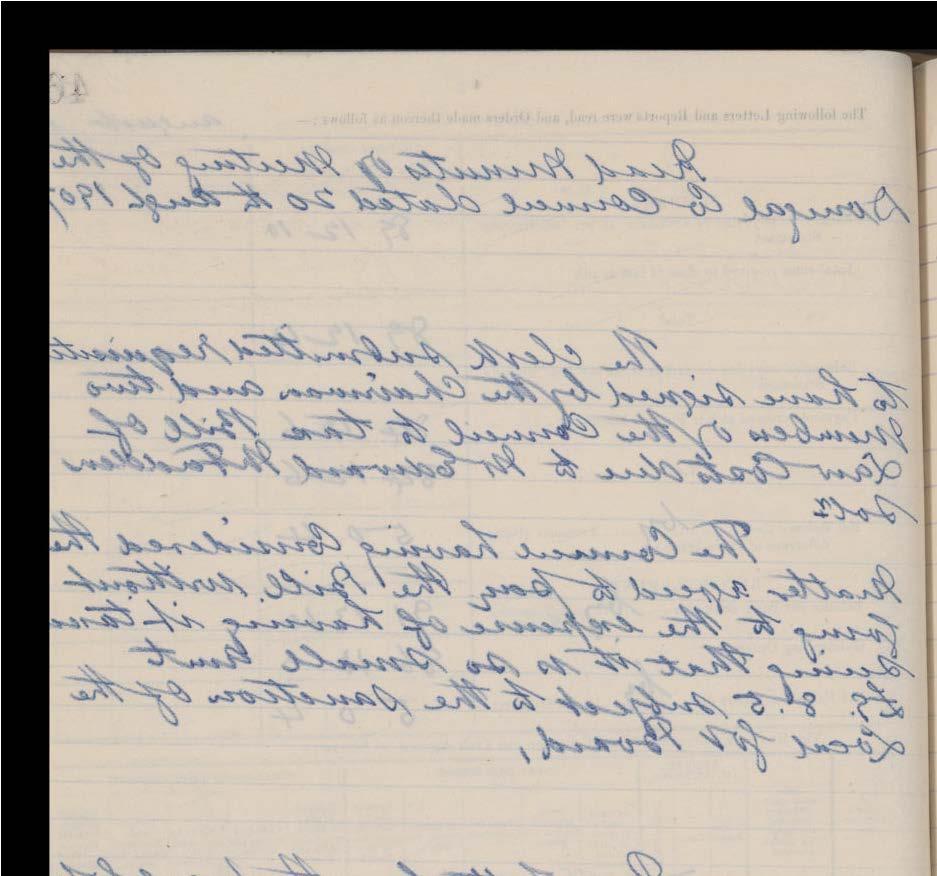 46
The following Letters and Reports were read, and Orders made thereon as follows:—
Read Minutes of Meeting of the
Donegal Co Council dated 20th Augt 190
The Clerk submitted requisite
to have signed by the Chairman and two
Members of the Council to tax Bill of
Law Costs due to Mr Edward McFadden
Solr
The Council having Considered the
Matter agreed to pay the Bill without
going to the expense of having it taxed
seeing that it is so small Amt
£7. 2. 5 subject to the sanction of the
Local Govt Board,